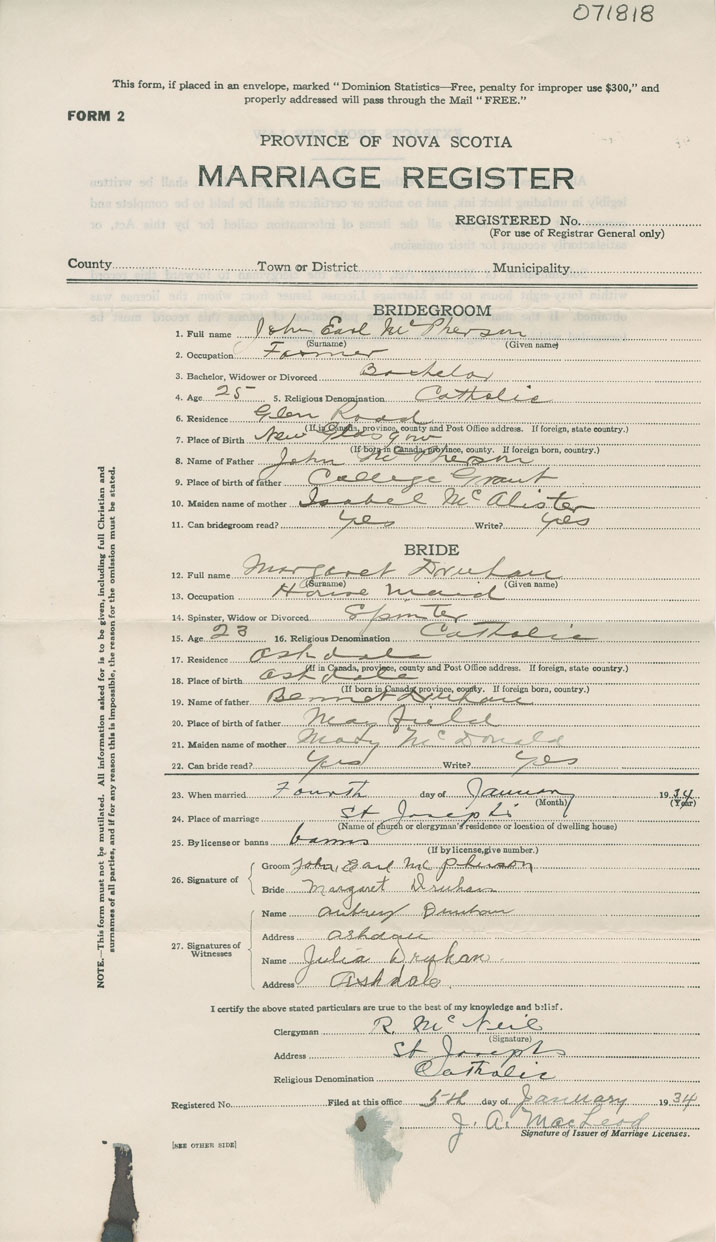 071818
This form, if placed in an envelope, marked "Dominion Statistics—Free, penalty for improper use $300," and
properly addressed will pass through the Mail "FREE."
FORM 2
PROVINCE OF NOVA SCOTIA
MARRIAGE REGISTER
REGISTERED No.
(For use of Registrar General only)
County Town or District Municipality
BRIDEGROOM
1. Full name John Earl McPherson
(Surname) (Given name)
2. Occupation Farmer
3. Bachelor, Widower or Divorced Bachelor
4. Age 25 5. Religious Denomination Catholic
6. Residence Glen Road
(If in Canada, province, county and Post Office address. If foreign, state country.)
7. Place of Birth New Glasgow
(If born in Canada, province, county. If foreign born, country.)
8. Name of Father John McPherson
9. Place of birth of father College Grant
10. Maiden name of mother Isabel McAlister
11. Can bridegroom read? yes Write? yes
BRIDE
12. Full name Margaret Druhan
(Surname) (Given name)
13. Occupation House Maid
14. Spinster, Widow or Divorced Spinter
15. Age 23 16. Religious Denomination Catholic
17. Residence Ashdale
(If in Canada, province, county and Post Office address. If foreign, state country.)
18. Place of birth Ashdale
(If born in Canada, province, county. If foreign born, country.)
19. Name of father Bennet Druhan
20. Place of birth of father May field
21. Maiden name of mother Mary McDonald
22. Can bride read? yes Write? yes
23. When married Fourth day of January 1934
(Month) (Year)
24. Place of marriage St Joseph's
(Name of church or clergyman's residence or location of dwelling house)
25. By license or banns banns
(If by license, give number.)
26. Signature of Groom John Earl McPherson
Bride Margaret Druhan
27. Signatures of Witnesses Name Aubrey Druhan
Address Ashdale
Name Julia Druhan
Address Ashdale
I certify the above stated particulars are true to the best of my knowledge and belief.
Clergyman R. McNeil
(Signature)
Address St Josephs
Religious Denomination Catholic
Registered No. Filed at this office 5th day of January 1934
J. A. MacLeod
Signature of Issuer of Marriage Licenses.
[SEE OTHER SIDE]
NOTE.—This form must not be mutilated. All information asked for is to be given, including full Christian and
surnames of all parties, and if for any reason this is impossible, the reason for the omission must be stated.